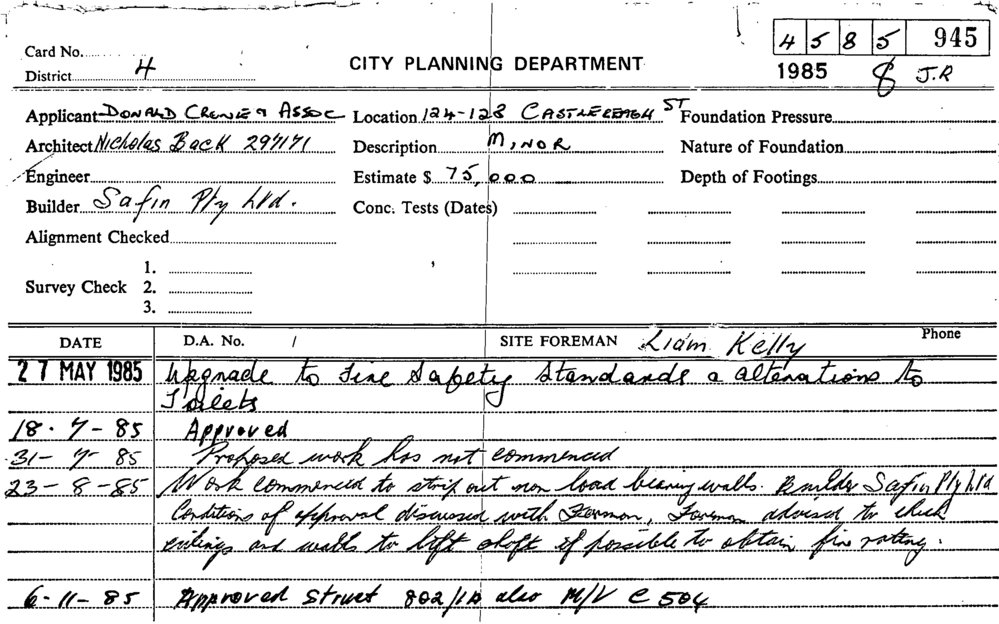 4 5 8 5 945
Card No.
District 4
CITY PLANNING DEPARTMENT
1985 8 J.R
Applicant DONALD CRONE & ASSOC Location 124-128 CASTLEREAGH ST Foundation Pressure
Architect Nicholas Back 297171 Description MINOR Nature of Foundation
Engineer Estimate $ 75,000 Depth of Footings
Builder Safin Pty Ltd. Conc. Tests (Dates)
Alignment Checked
1.
Survey Check 2.
3.
DATE D.A. No. / SITE FOREMAN Liam Kelly Phone
27 MAY 1985 Upgrade to Fire Safety Standards & alterations to
Toilets
18-7-85 Approved
31-7-85 Proposed work has not commenced
23-8-85 Work commenced to strip out non load bearing walls. Builder Safin Pty Ltd
Conditions of approval discussed with Forman, Foreman advised to check
ceilings and walls to lift shaft if possible to obtain fire rating.
6-11-85 Approved Struct 802/ also M/V C 504